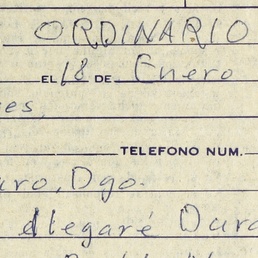 ORDINARIO
EL 18 DE Enero
es,
TELEFONO NUM.
aro, Dgo.
llegaré Dura